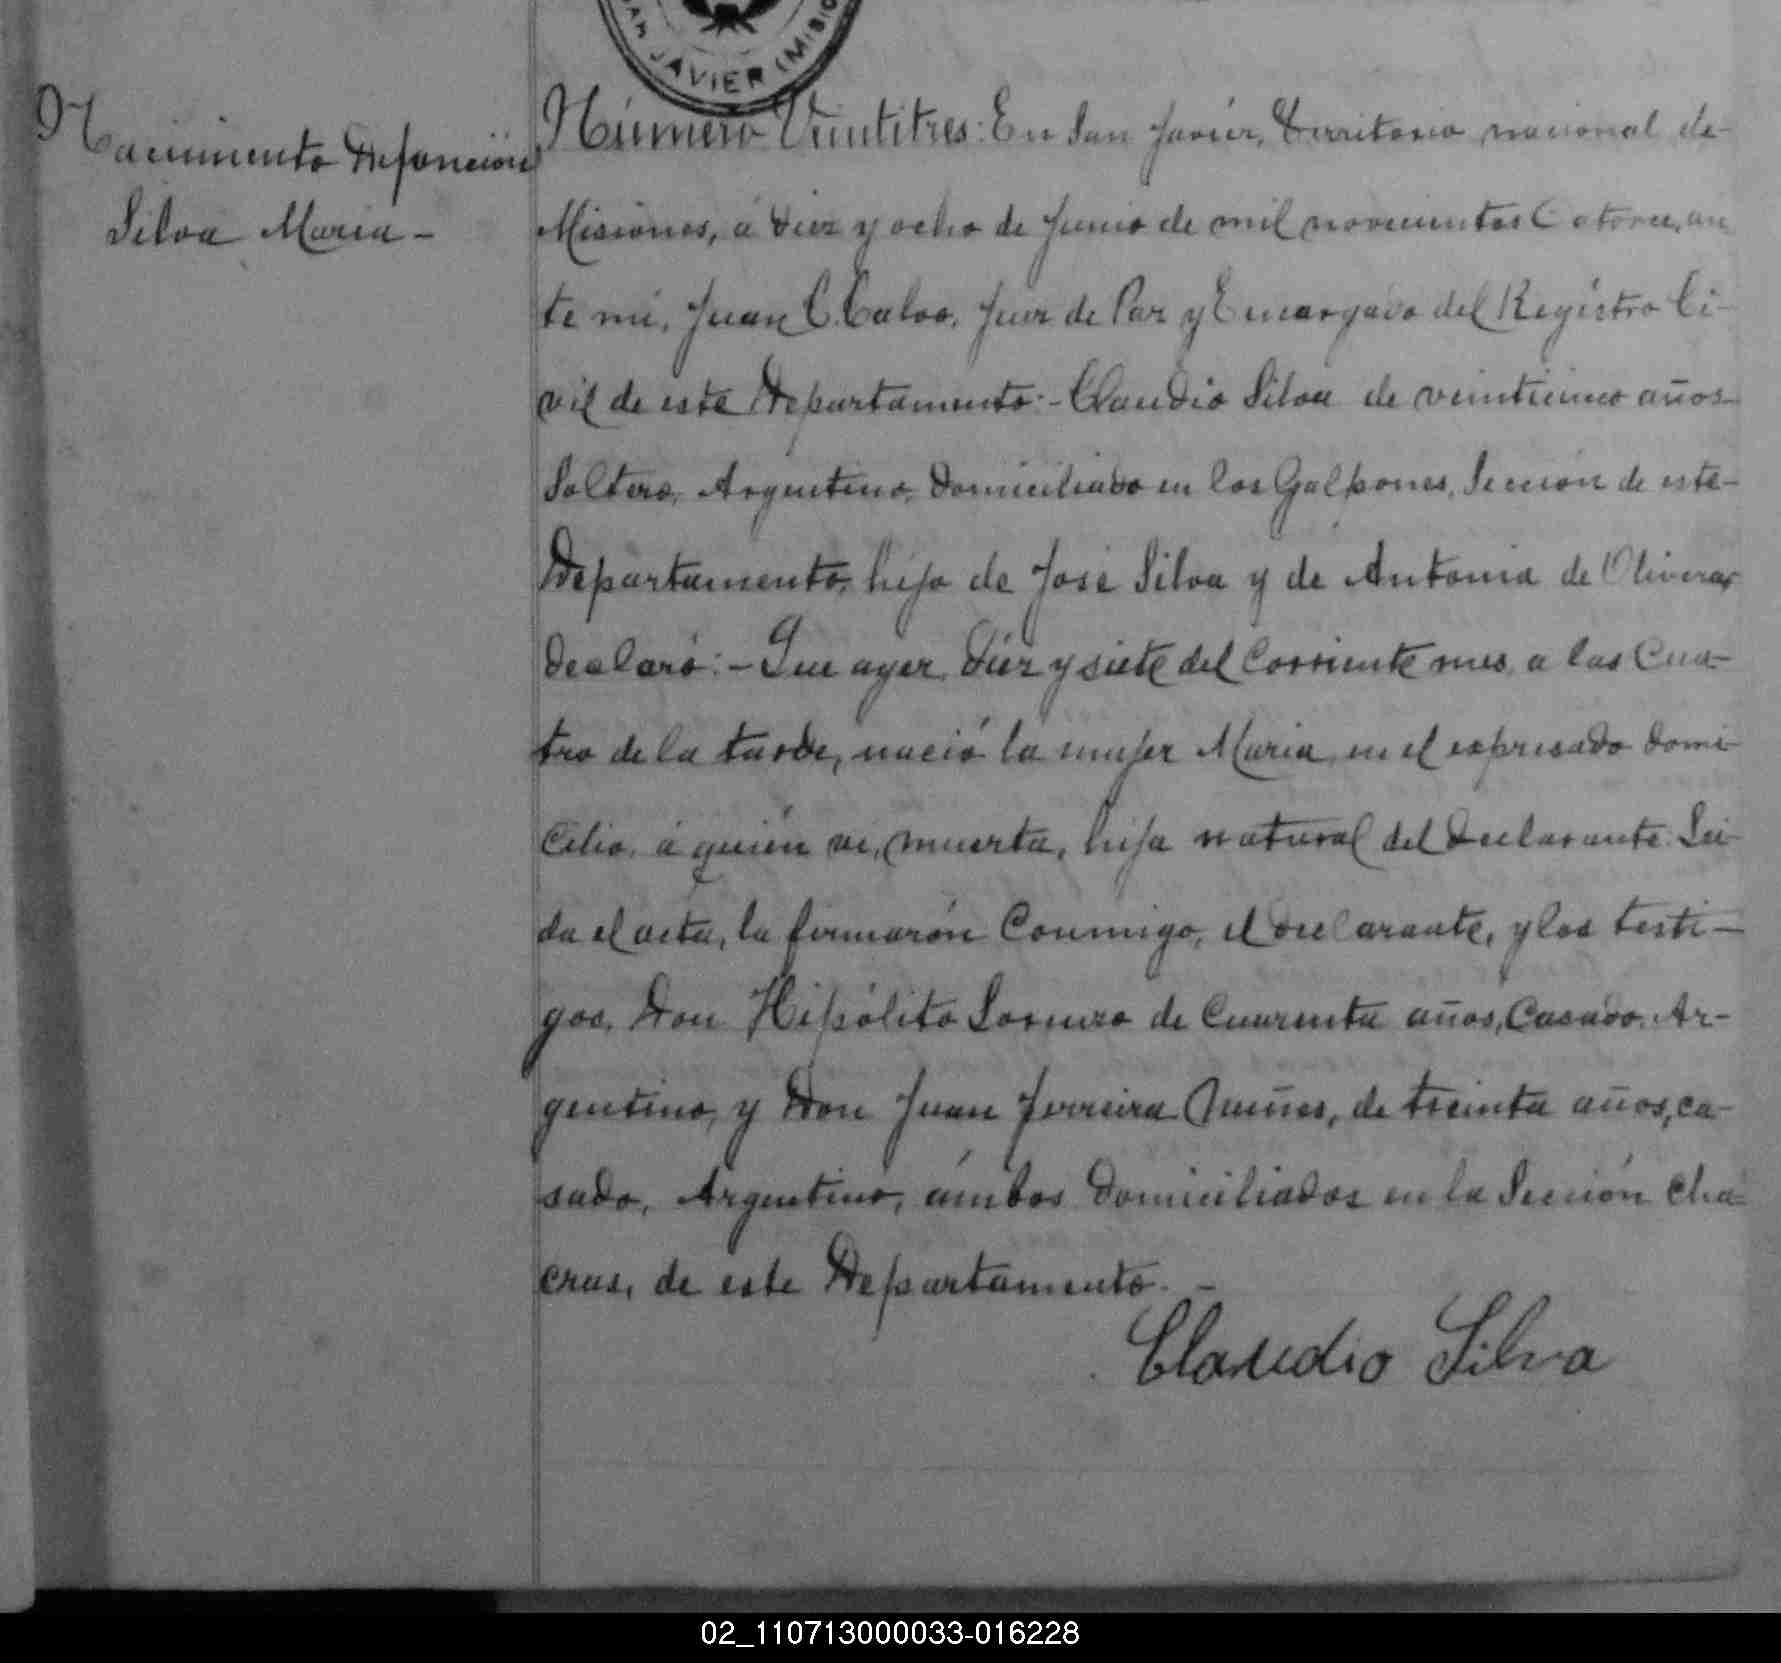 SAN JAVIER (MISIO
Nacimiento Defunción
Silva Maria -
Número Veintitres: En San Javier, Territorio nacional de-
Misiones, á diez y ocho de Junio de mil novecientos Catorce, an
te mi, Juan C. Calvo, Juez de Paz y Encargado del Registro Ci-
vil de este Departamento:- Claudio Silva de veinticinco años-
Soltero, Argentino, domiciliado en los Galpones, Sección de este-
Departamento, hijo de José Silva y de Antonia de Olivera,
declaró:- Que ayer, diez y siete del Corriente mes, a las Cua-
tro de la tarde, nació la mujer Maria, en el expresado domi-
Cilio, á quién vi, muerta, hija natural del declarante. Lei-
da el acta, la firmarón Conmigo, el declarante, y los testi-
gos, Don Hipólito de Cuarenta años, Casado, Ar-
gentino, y Don Juan Ferreira Nuñes, de treinta años, ca-
sado, Argentino, ámbos domiciliados en la Sección Cha-
cras, de este Departamento. -
Claudio Silva
02_110713000033-016228